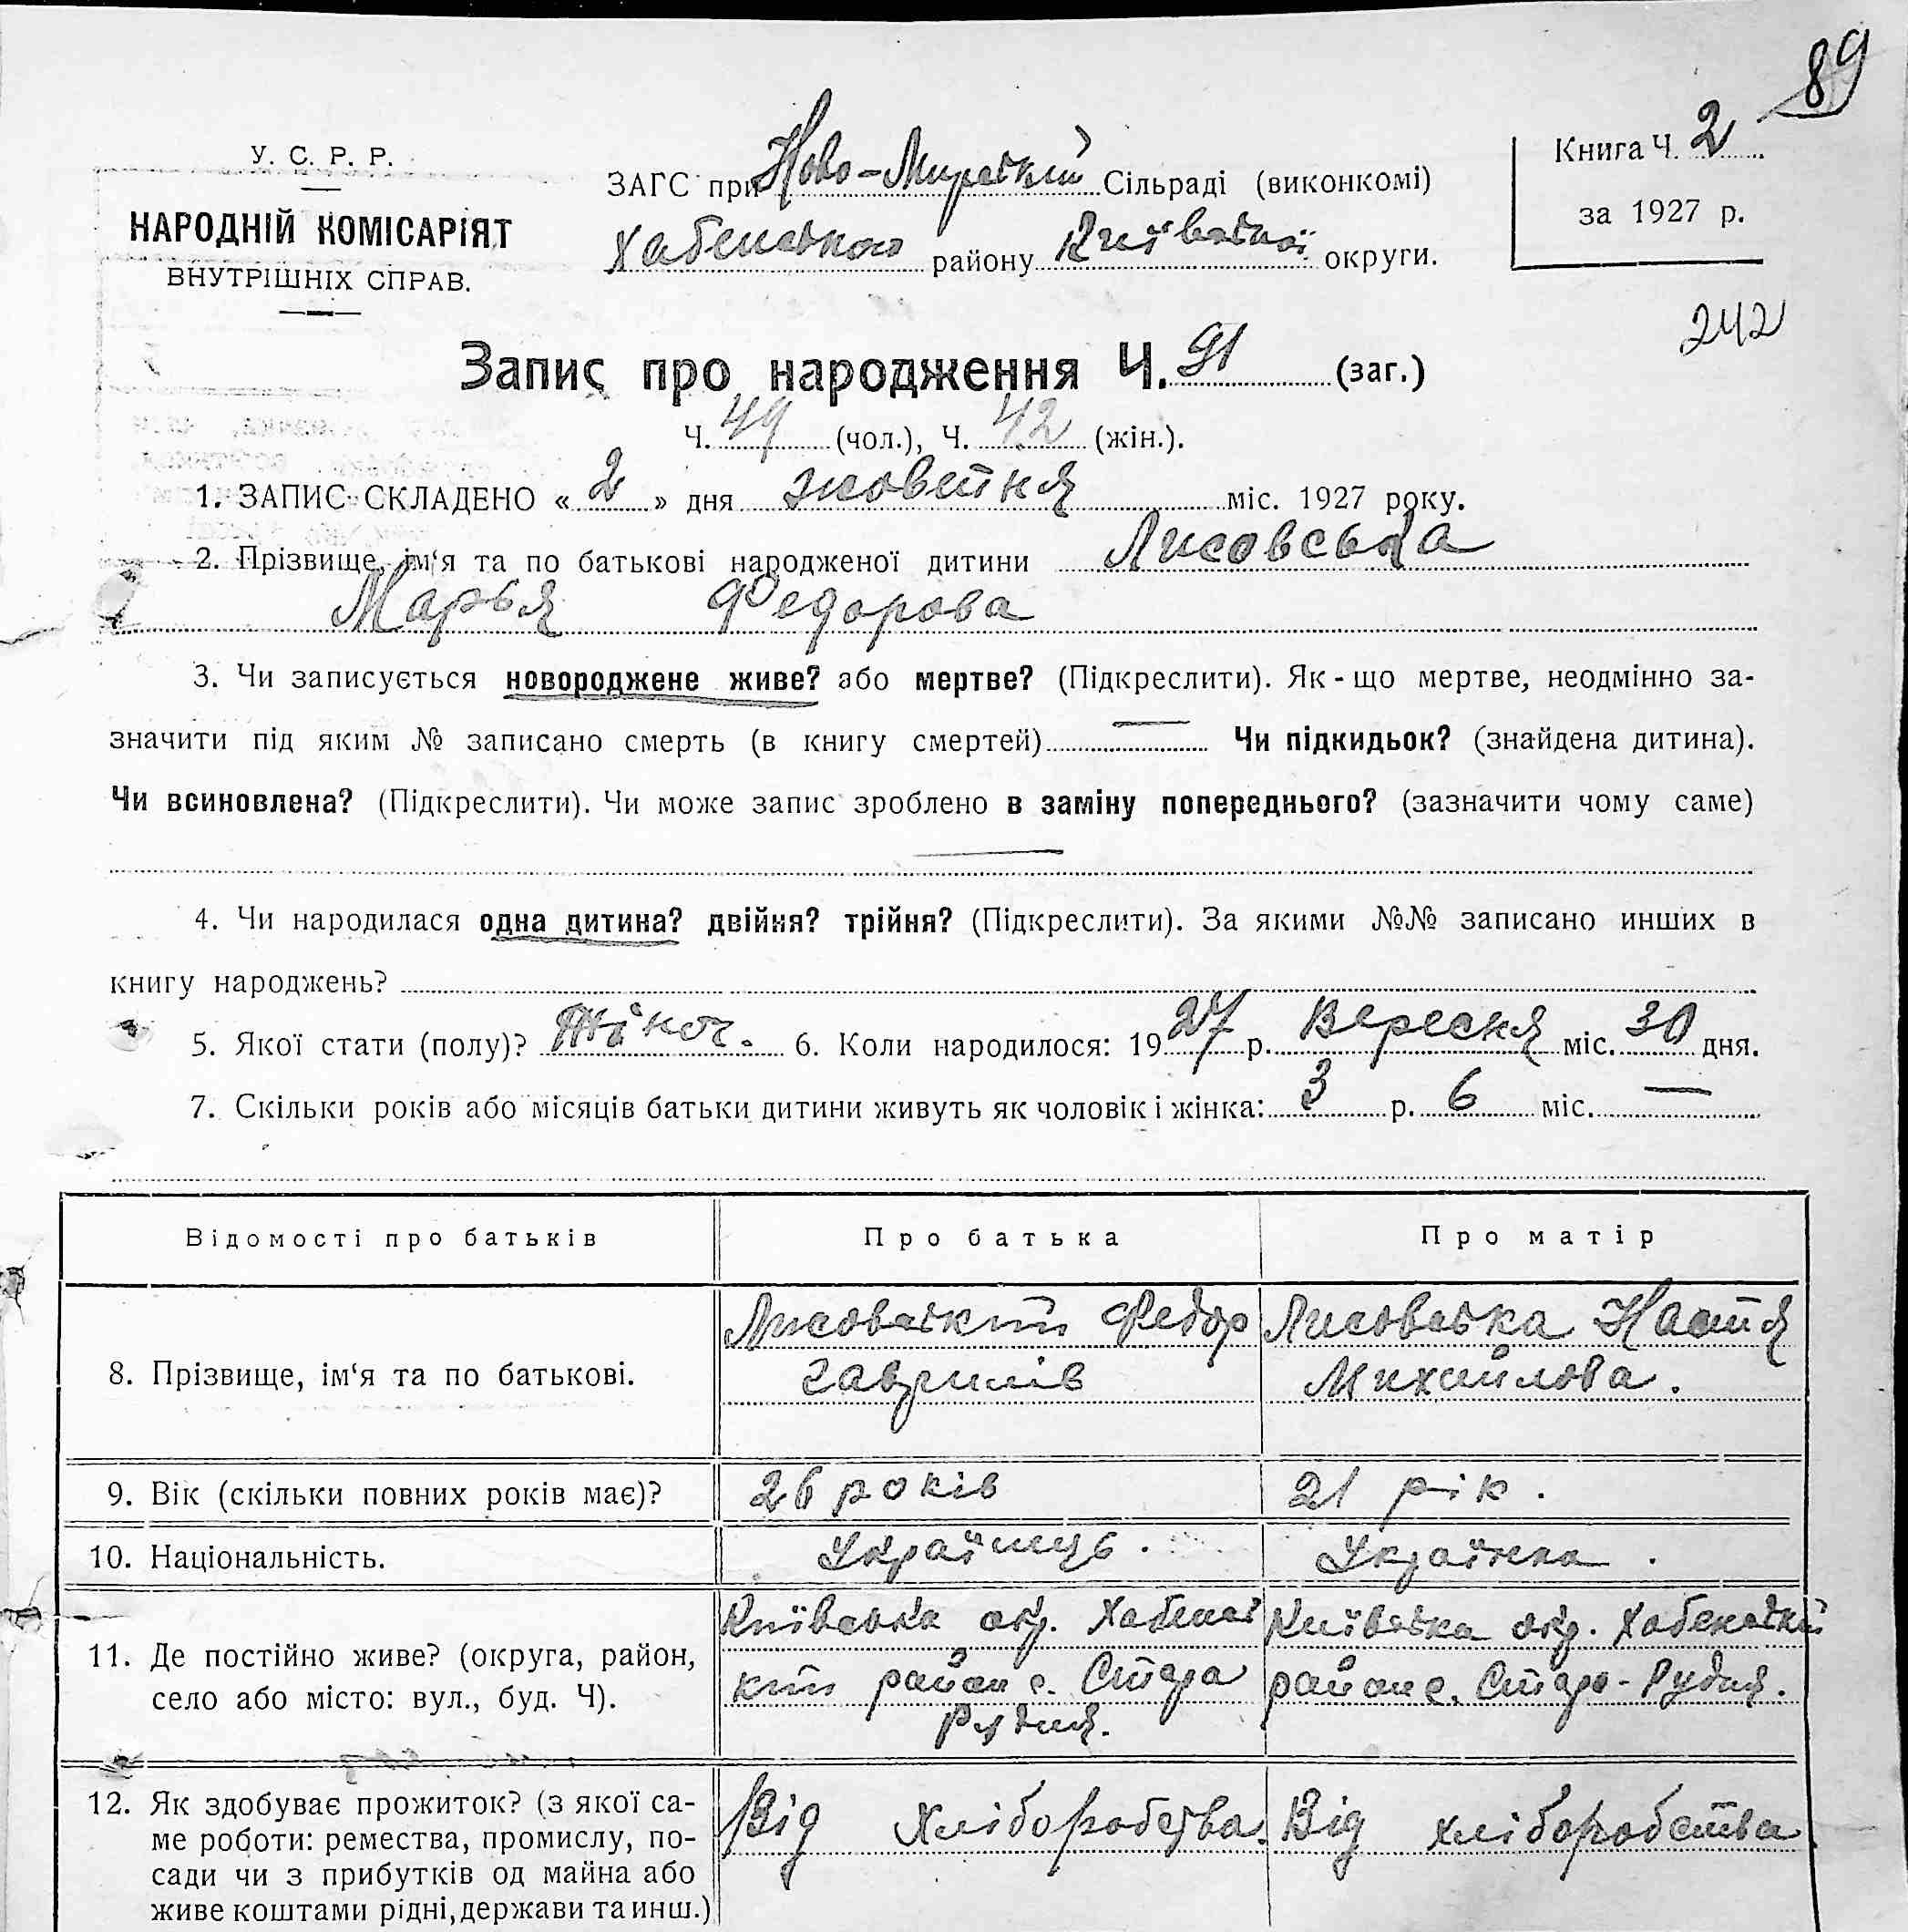 89
У. С. Р. Р.
НАРОДНІЙ КОМІСАРІЯТ
ВНУТРІШНІХ СПРАВ.
ЗАГС при Ново-Мирський Сільраді (виконкомі)
Хабенського району Київської округи.
Книга Ч. 2
за 1927 р.
242
Запис про народження Ч. 91 (заг.)
Ч. 49 (чол.), Ч. 42 (жін.).
1. ЗАПИС СКЛАДЕНО « 2 » дня жовтня міс. 1927 року.
2. Прізвище, ім‘я та по батькові народженої дитини Лисовська
Марья Федорова
3. Чи записується новороджене живе? або мертве? (Підкреслити). Як-що мертве, неодмінно за-
значити під яким № записано смерть (в книгу смертей) — Чи підкидьок? (знайдена дитина).
Чи всиновлена? (Підкреслити). Чи може запис зроблено в заміну попереднього? (зазначити чому саме)
—
4. Чи народилася одна дитина? двійня? трійня? (Підкреслити). За якими №№ записано инших в
книгу народжень?
5. Якої стати (полу)? Жіноч. 6. Коли народилося: 1927 р. Вересня міс. 30 дня.
7. Скільки років або місяців батьки дитини живуть як чоловік і жінка: 3 р. 6 міс. —
Відомості про батьків Про батька Про матір
8. Прізвище, ім‘я та по батькові.
Лисовський Федор
Гаврилів
Лисовська Настя
Михайлова.
9. Вік (скільки повних років має)? 26 років 21 рік.
10. Національність. Українець. Українка.
11. Де постійно живе? (округа, район,
село або місто: вул., буд. Ч).
Київська окр. Хабенсь
кий район с. Стара
Рудня.
Київська окр. Хабенський
район с. Старо-Рудня.
12. Як здобуває прожиток? (з якої са-
ме роботи: ремества, промислу, по-
сади чи з прибутків од майна або
живе коштами рідні, держави та инш.)
Від хліборобства.
Від хліборобства